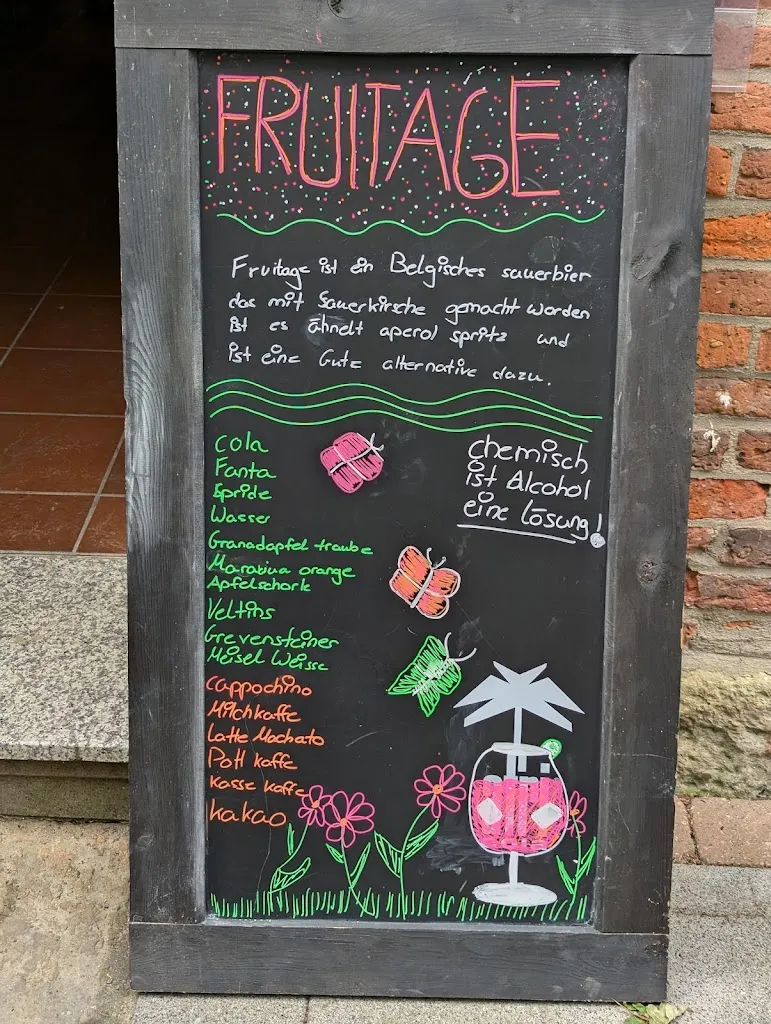 FRUITAGE
Fruitage ist ein Belgisches sauerbier
das mit Sauerkirsche gemacht worden
ist es ähnelt aperol spritz und
ist eine Gute alternative dazu.
chemisch
ist Alcohol
eine lösung!
Cola
Fanta
Spride
Wasser
Granadapfel traube
Maracuja orange
Apfelschorle
Veltins
Grevensteiner
Meisel Weisse
Cappochino
Milchkaffe
Latte Machato
Pott kaffe
kasse kaffe
kakao